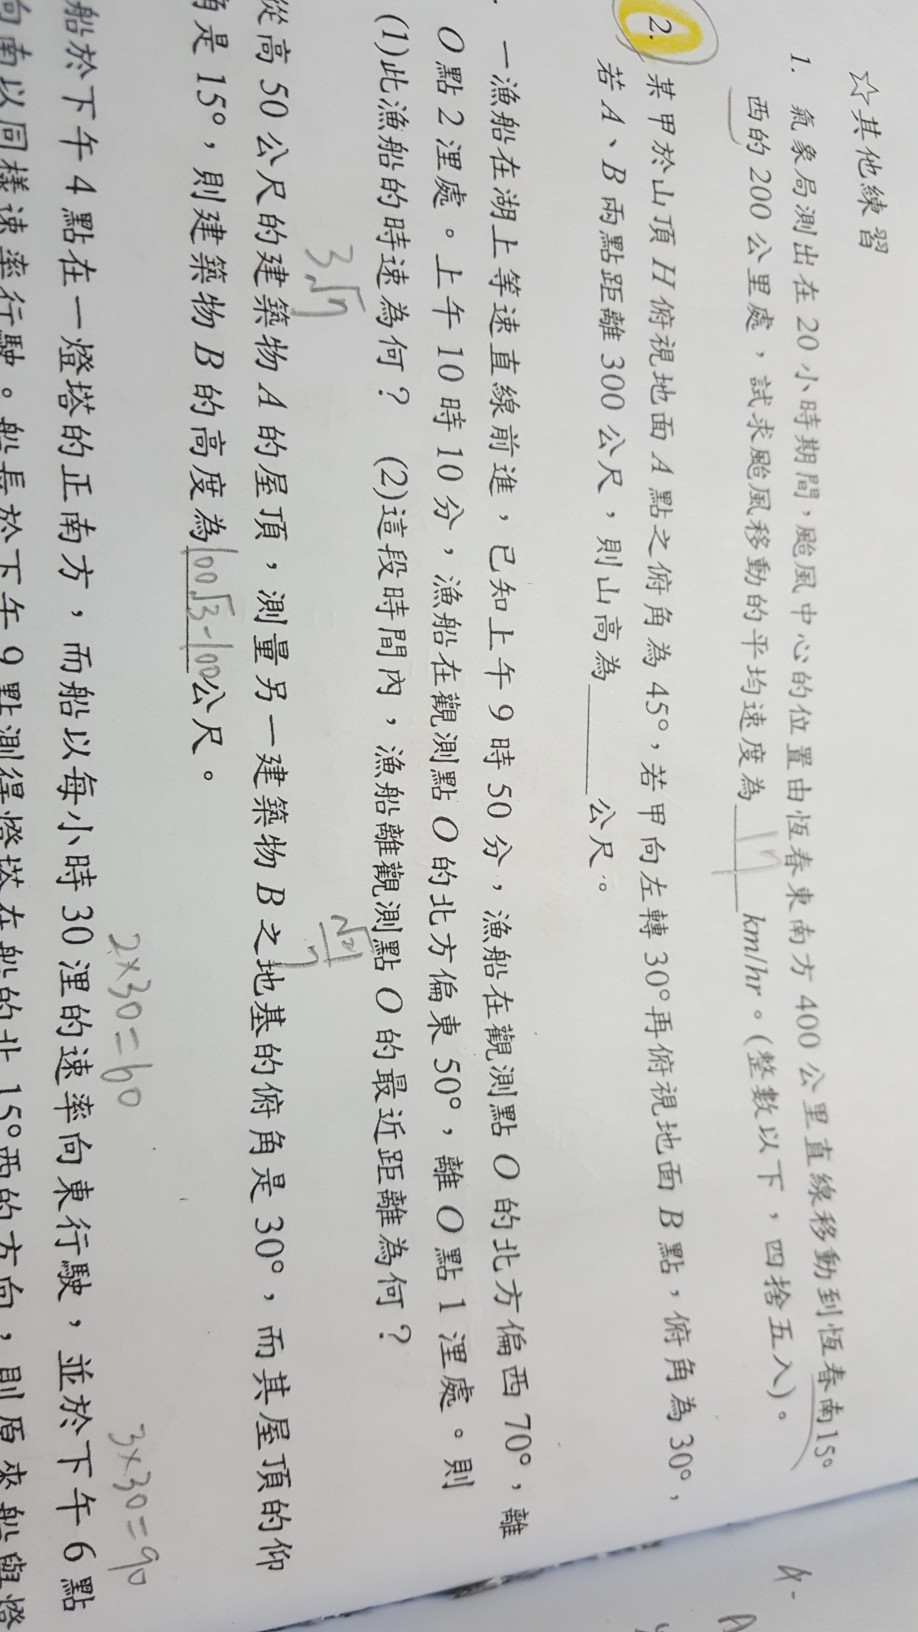 ☆其他練習
1. 氣象局測出在 20 小時期間，颱風中心的位置由恆春東南方 400 公里直線移動到恆春南15°
西的 200 公里處，試求颱風移動的平均速度為 17 km/hr。(整數以下，四捨五入)。
2. 某甲於山頂 H 俯視地面 A 點之俯角為 45°，若甲向左轉 30°再俯視地面 B 點，俯角為 30°，
若 A、B 兩點距離 300 公尺，則山高為______公尺。
一漁船在湖上等速直線前進，已知上午 9 時 50 分，漁船在觀測點 O 的北方偏西 70°，離
O點 2 浬處。上午 10 時 10 分，漁船在觀測點 O 的北方偏東 50°，離 O 點 1 浬處。則
(1)此漁船的時速為何？ (2)這段時間內，漁船離觀測點 O 的最近距離為何？
3√7
從高 50 公尺的建築物 A 的屋頂，測量另一建築物 B 之地基的俯角是 30°，而其屋頂的仰
角是 15°，則建築物 B 的高度為100√3-100公尺。
2×30=60
3×30=90
船於下午 4 點在一燈塔的正南方，而船以每小時 30 浬的速率向東行駛，並於下午 6 點
向南以同樣速率行駛。船長於下午 9 點測得燈塔在船的北 15°西的方向，則原來船與燈